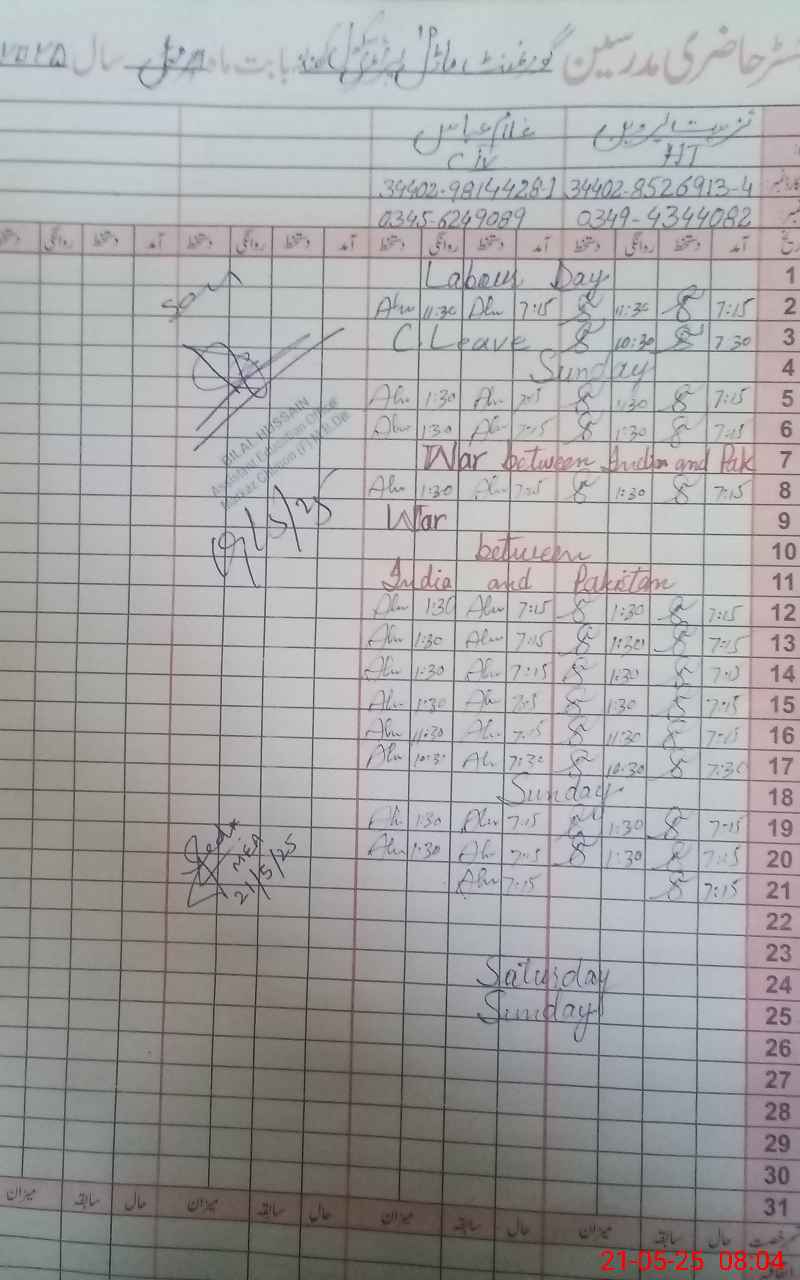 رجسٹر حاضری مدرسین گورنمنٹ ماڈل پرائمری سکول بابت ماہ سال ۲۰۲۵
نزہت پروین غلام عباس
HT
34402-8526913-4 34402-9814428-1
0349-4344082 0345-6249089
آمد دستخط روانگی دستخط آمد دستخط روانگی دستخط آمد دستخط روانگی دستخط آمد دستخط روانگی دستخط
Labour Day 1
11:30 7:15 11:30 7:15 2
C Leave 10:30 7:30 3
Sunday 4
1:30 7:15 1:30 7:15 5
1:30 7:15 1:30 7:15 6
War between India and Pak 7
1:30 7:15 1:30 7:15 8
War 9
between 10
India and Pakistan 11
1:30 7:15 1:30 7:15 12
1:30 7:15 1:30 7:15 13
1:30 7:15 1:30 7:15 14
1:30 7:15 1:30 7:15 15
11:30 7:15 11:30 7:15 16
10:30 7:30 10:30 7:30 17
Sunday 18
1:30 7:15 1:30 7:15 19
1:30 7:15 1:30 7:15 20
7:15 7:15 21
22
23
Saturday 24
Sunday 25
26
27
28
29
30
31
BILAL HUSSAIN
Assistant Education Officer
MEA
21/5/25
حال سابقہ میزان حال سابقہ میزان حال سابقہ میزان حال سابقہ میزان
21-05-25 08:04